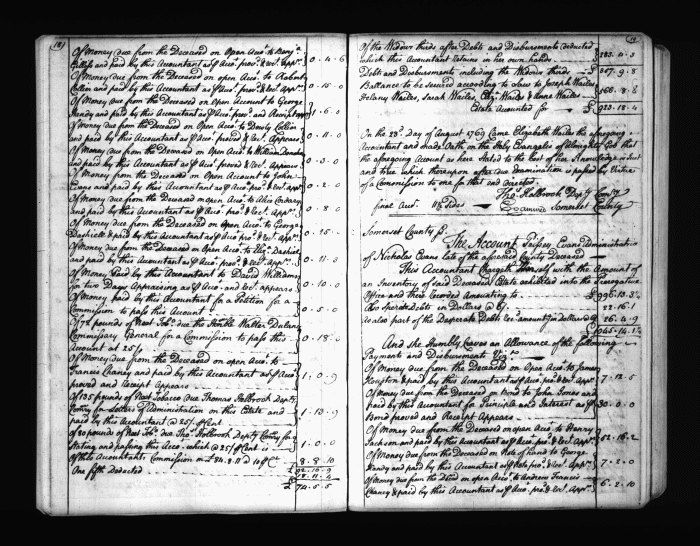 18)
Of Money due from the Deceased on Open Acco.t to Benj.a
and paid by this Accountant as P Acco.t prov.d & Rec.t App.rs 0. 4. 6
Of Money due from the Deceased on open Acco.t to Robert
Collen and paid by this Accountant as P Acco.t prov.d & Rec.t App.rs 0. 15. 0
Of Money due from the Deceased on open Account to George
Handy and paid by this Accountant as P Acco.t prov.d and Receipt app.rs 1. 6. 3
Of Money due from the Deceased on open Acco.t to
and paid by this Accountant as P Acco.t proved & Rec.t Appears 0. 11. 0
Of Money due from the Deceased on open Acco.t to William
and paid by this Accountant as P Acco.t proved & Rec.t Appears 0. 3. 0
Of Money due from the Deceased on open Account to John
Evans and paid by this Accountant as P Acco.t prov.d & Rec.t app.rs 0. 2. 0
Of Money due from the Deceased on open Acco.t to
and paid by this Accountant as P Acco.t prov.d & Rec.t App.rs 0. 8. 0
Of Money due from the Deceased on open Acco.t to George
Dashiell & paid by this Accountant as P Acco.t prov.d & Rec.t App.rs 0. 15. 0
Of Money due from the Deceased on open Acco.t to Dashiell
and paid by this Accountant as P Acco.t prov.d & Rec.t App.rs 0. 11. 3
Of Money Paid by this Accountant to David Williams
for two Days Appraising as P Acco.t and Rec.t appears 0. 10. 0
Of Money paid by this Accountant for a Petition for a
Commission to pass this Account 0. 5. 0
Of 72 pounds of Neet Tob.o due the Hon.ble Walter Dulany
Commissary General for a Commission to pass this
Account at 25/ 0. 18. 0
Of Money due from the Deceased on open Acco.t to
Francis Chaney and paid by this Accountant as P Acco.t
proved and Receipt Appears 1. 0. 9
Of 135 pounds of Neet Tobacco due Thomas Holbrook Dep.ty
Com.ry for Letters of Administration on this Estate and
paid by this Accountant @ 25/ P Cent 1. 13. 9
Of 80 pounds of Neet Tob.o due Tho.s Holbrook Dep.ty Com.ry for
Stating and passing this Acco.t which @ 25/ P Cent is 1. 0. 0
Of this Accountants Commission on £ 84. 8. 11 @ 10 P C.t 8. 8. 10
£ 92. 16. 9
One fifth Deducted 18. 11. 4
£ 74. 5. 5
19
Of the Widows thirds after Debts and Disbursements deducted
which this Accountant Retains in her own hands £ 283. 4. 3
Debts and Disbursements including the Widows thirds £ 357. 9. 8
Ballance to be secured according to Law to Joseph Wailes
Helany Wailes, Sarah Wailes, Eliz.a Wailes & Anne Wailes 566. 8. 8
Estate Accounted for £ 923. 18. 4
On the 23.d Day of August 1769 Came Elizabeth Wailes the aforegoing
Accountant and made Oath on the Holy Evangels of Almighty God that
the aforegoing Account as here stated to the best of her Knowledge is Just
and true which thereupon after due Examination is passed by Virtue
of a Commission to me for that end directed
Tho.s Holbrook Dep.ty Com.ry
final Acc.t 11½ Sides Examined Somerset County
Somerset County ss.
The Account of Evans administratrix
of Nicholas Evans late of the aforesaid County Deceased
This Accountant Chargeth herself with the Amount of
an Inventory of said Deceaseds Estate exhibited into the Prerogative
Office and there Recorded Amounting to £ 996. 13. 3½
Also Sperate Debts in Dollars @ 6/ 22. 16. 1
as also part of the Desperate Debts Rec.d amount.g in dollars @ 6/ 26. 4. 9
£ 1045. 14. 1½
And She Humbly craves an Allowance of the following
Payments and Disbursements Viz.t
Of Money due from the Deceased on Open Acco.t to James
Houston & paid by this Accountant as P Acco.t prov.d & Rec.t App.rs 7. 12. 5
Of Money due from the Deceased on Bond to John Jones and
paid by this Accountant for Principle and Interest as P
Bond proved and Receipt Appears 80. 0. 0
Of Money due from the Deceased on open Acco.t to Henry
Jackson and paid by this Accountant as P Acco.t prov.d & Rec.t App.rs 52. 16. 2
Of Money due from the Deceased on Note of hand to George
Handy and paid by this Accountant as P Note prov.d & Rec.t App.rs 7. 2. 0
Of Money due from the Dec.d on open Acco.t to Andrew Francis
Chaney & paid by this Accountant as P Acco.t prov.d & Rec.t App.rs 6. 2. 10